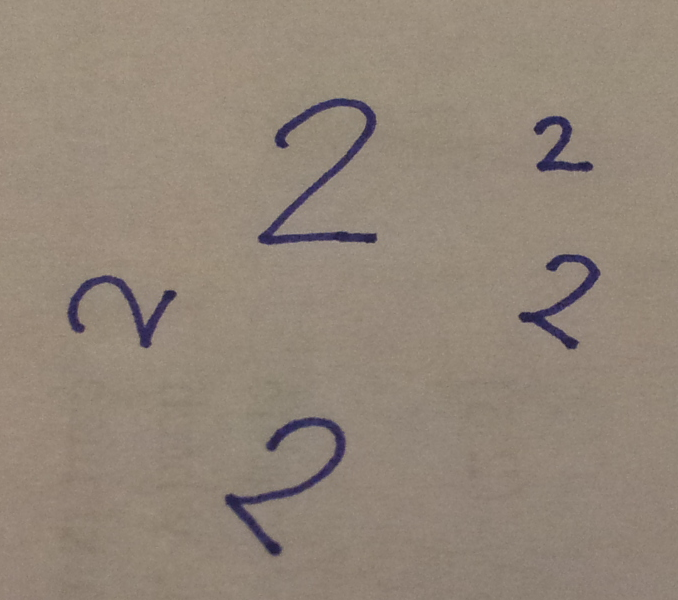 2 2
2 2
2